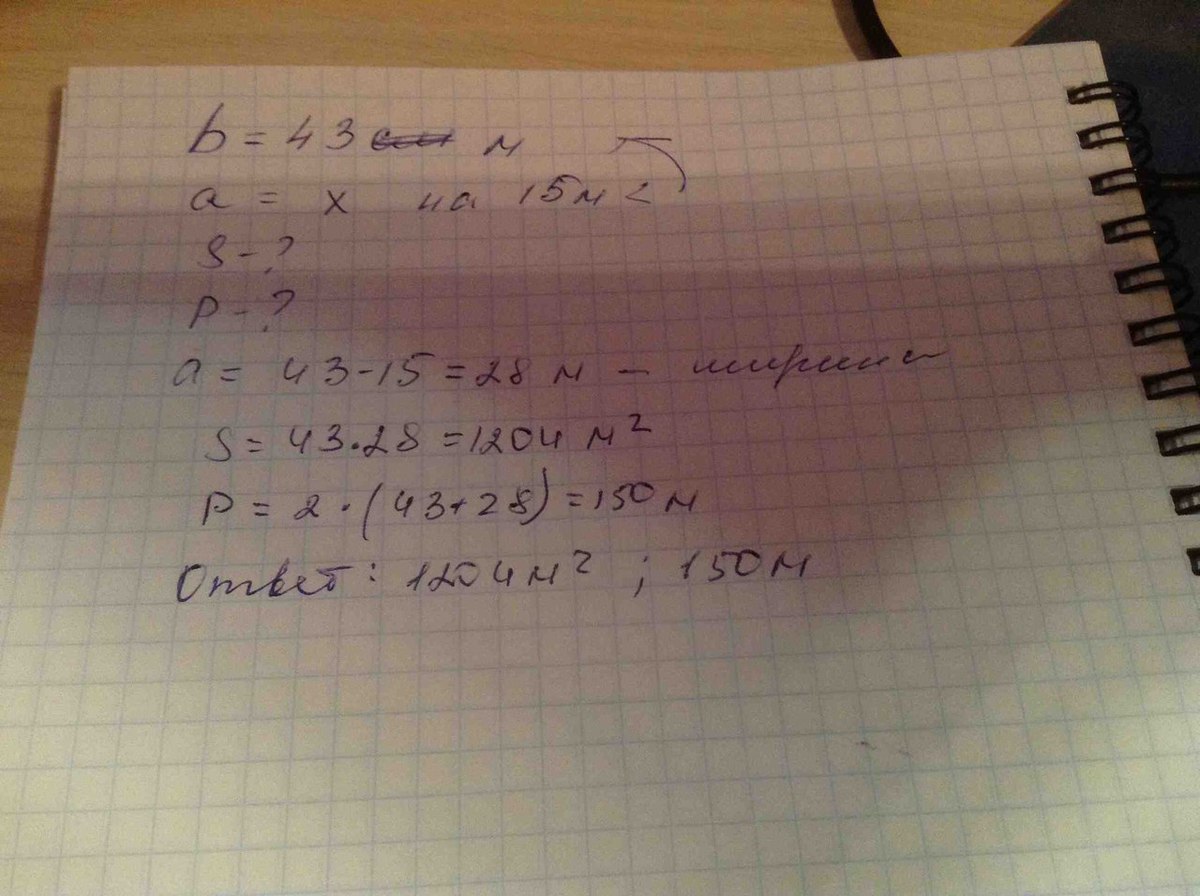 b = 43 м
a = x на 15м <
S - ?
P - ?
a = 43-15 = 28 м - ширина
S = 43·28 = 1204 м²
P = 2·(43+28) = 150 м
Ответ: 1204 м² ; 150 м